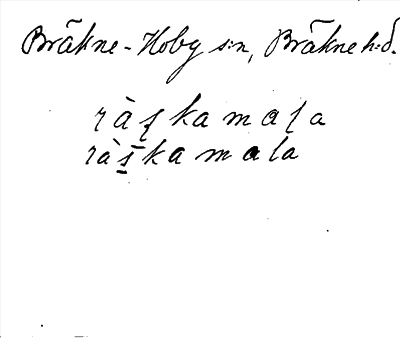 Bräkne-Hoby s:n, Bräkne h:d.
ràʂkamaɭa
ràs̲kamala